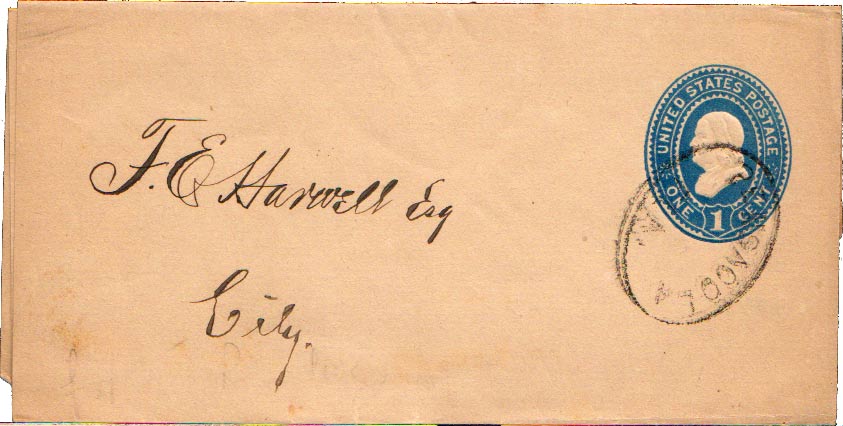 UNITED STATES POSTAGE
ONE 1 CENT
F. E. Harwell Esq
City.